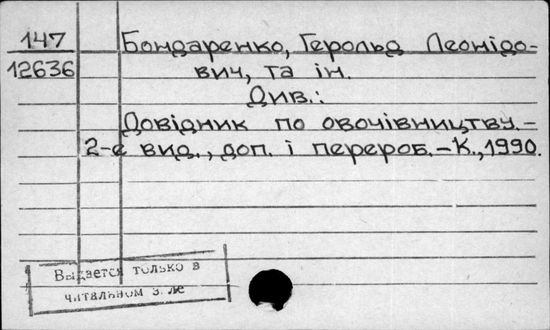 147
12636
Бондаренко, Герольд Леонідо-
вич, та ін.
Див.:
Довідник по овочівництву.-
2-е вид., доп. і перероб.-К.,1990.
Выдается только в
читальном зале